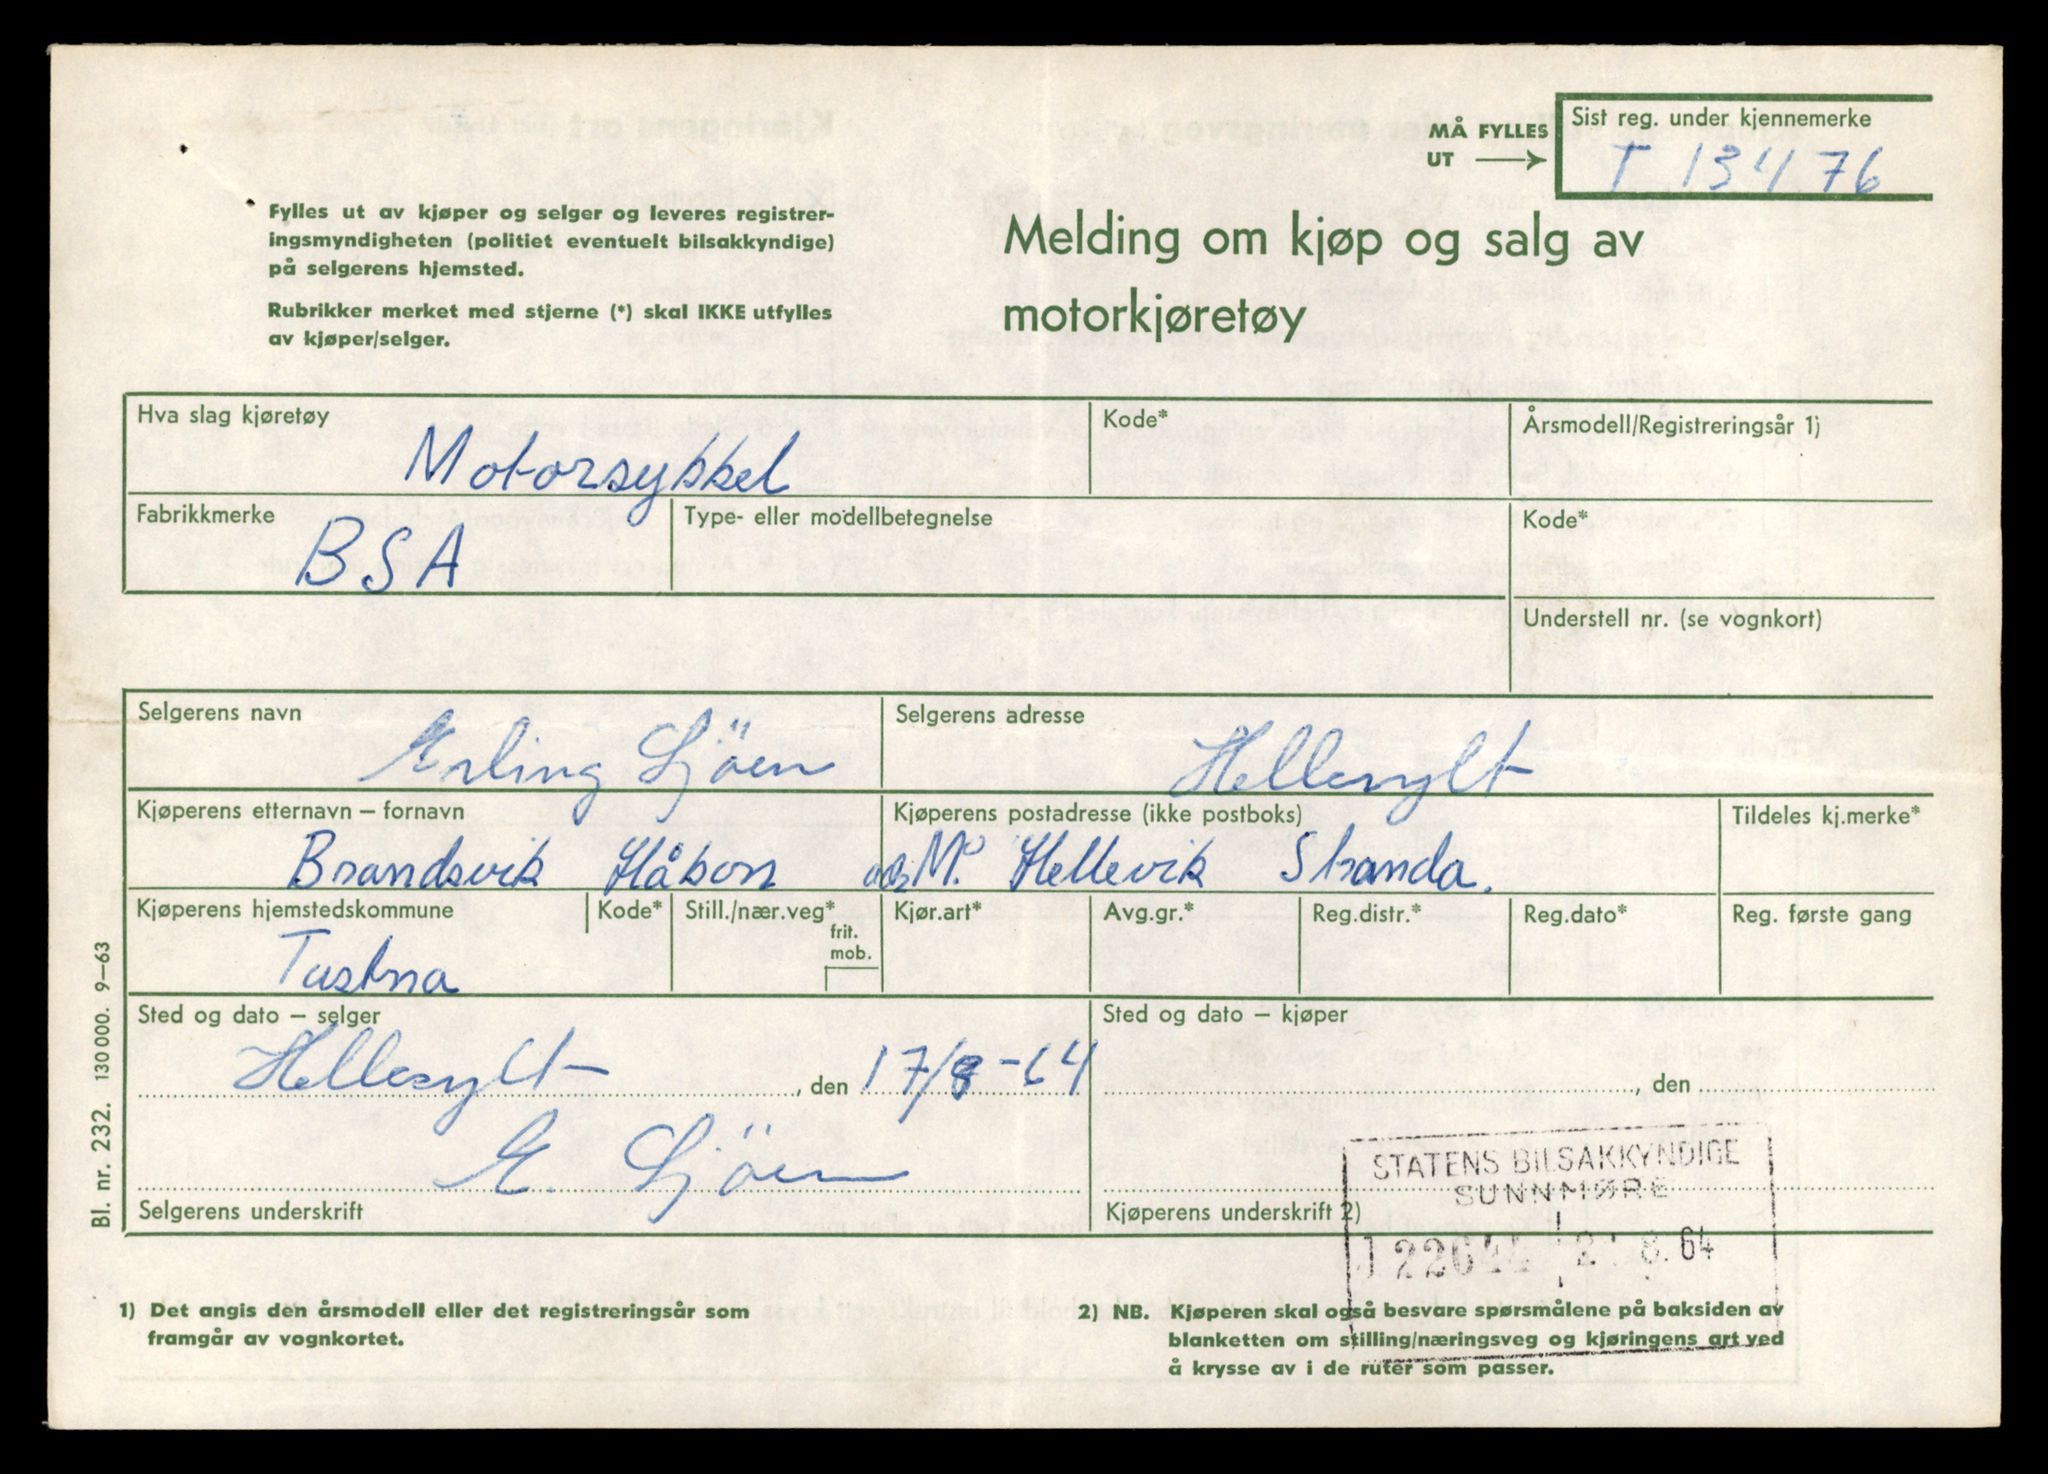 MÅ FYLLES UT
Sist reg. under kjennemerke
T 13476
Fylles ut av kjøper og selger og leveres registrer-
ingsmyndigheten (politiet eventuelt bilsakkyndige)
på selgerens hjemsted.
Rubrikker merket med stjerne (*) skal IKKE utfylles
av kjøper/selger.
Melding om kjøp og salg av
motorkjøretøy
Hva slag kjøretøy
Motorsykkel
Kode*
Årsmodell/Registreringsår 1)
Fabrikkmerke
BSA
Type- eller modellbetegnelse
Kode*
Understell nr. (se vognkort)
Selgerens navn
Erling Sjöen
Selgerens adresse
Hellesylt
Kjøperens etternavn – fornavn
Brandsvik Håkon
Kjøperens postadresse (ikke postboks)
M. Hellevik Stranda.
Tildeles kj.merke*
Kjøperens hjemstedskommune
Tustna
Kode*
Still./nær.veg*
frit.
mob.
Kjør.art*
Avg.gr.*
Reg.distr.*
Reg.dato*
Reg. første gang
Sted og dato – selger
Hellesylt, den 17/8-64
Sted og dato – kjøper
, den
E. Sjöen
Selgerens underskrift
Kjøperens underskrift 2)
STATENS BILSAKKYNDIGE
SUNNMØRE
8. 64
Bl. nr. 232. 130 000. 9–63
1) Det angis den årsmodell eller det registreringsår som
framgår av vognkortet.
2) NB. Kjøperen skal også besvare spørsmålene på baksiden av
blanketten om stilling/næringsveg og kjøringens art ved
å krysse av i de ruter som passer.